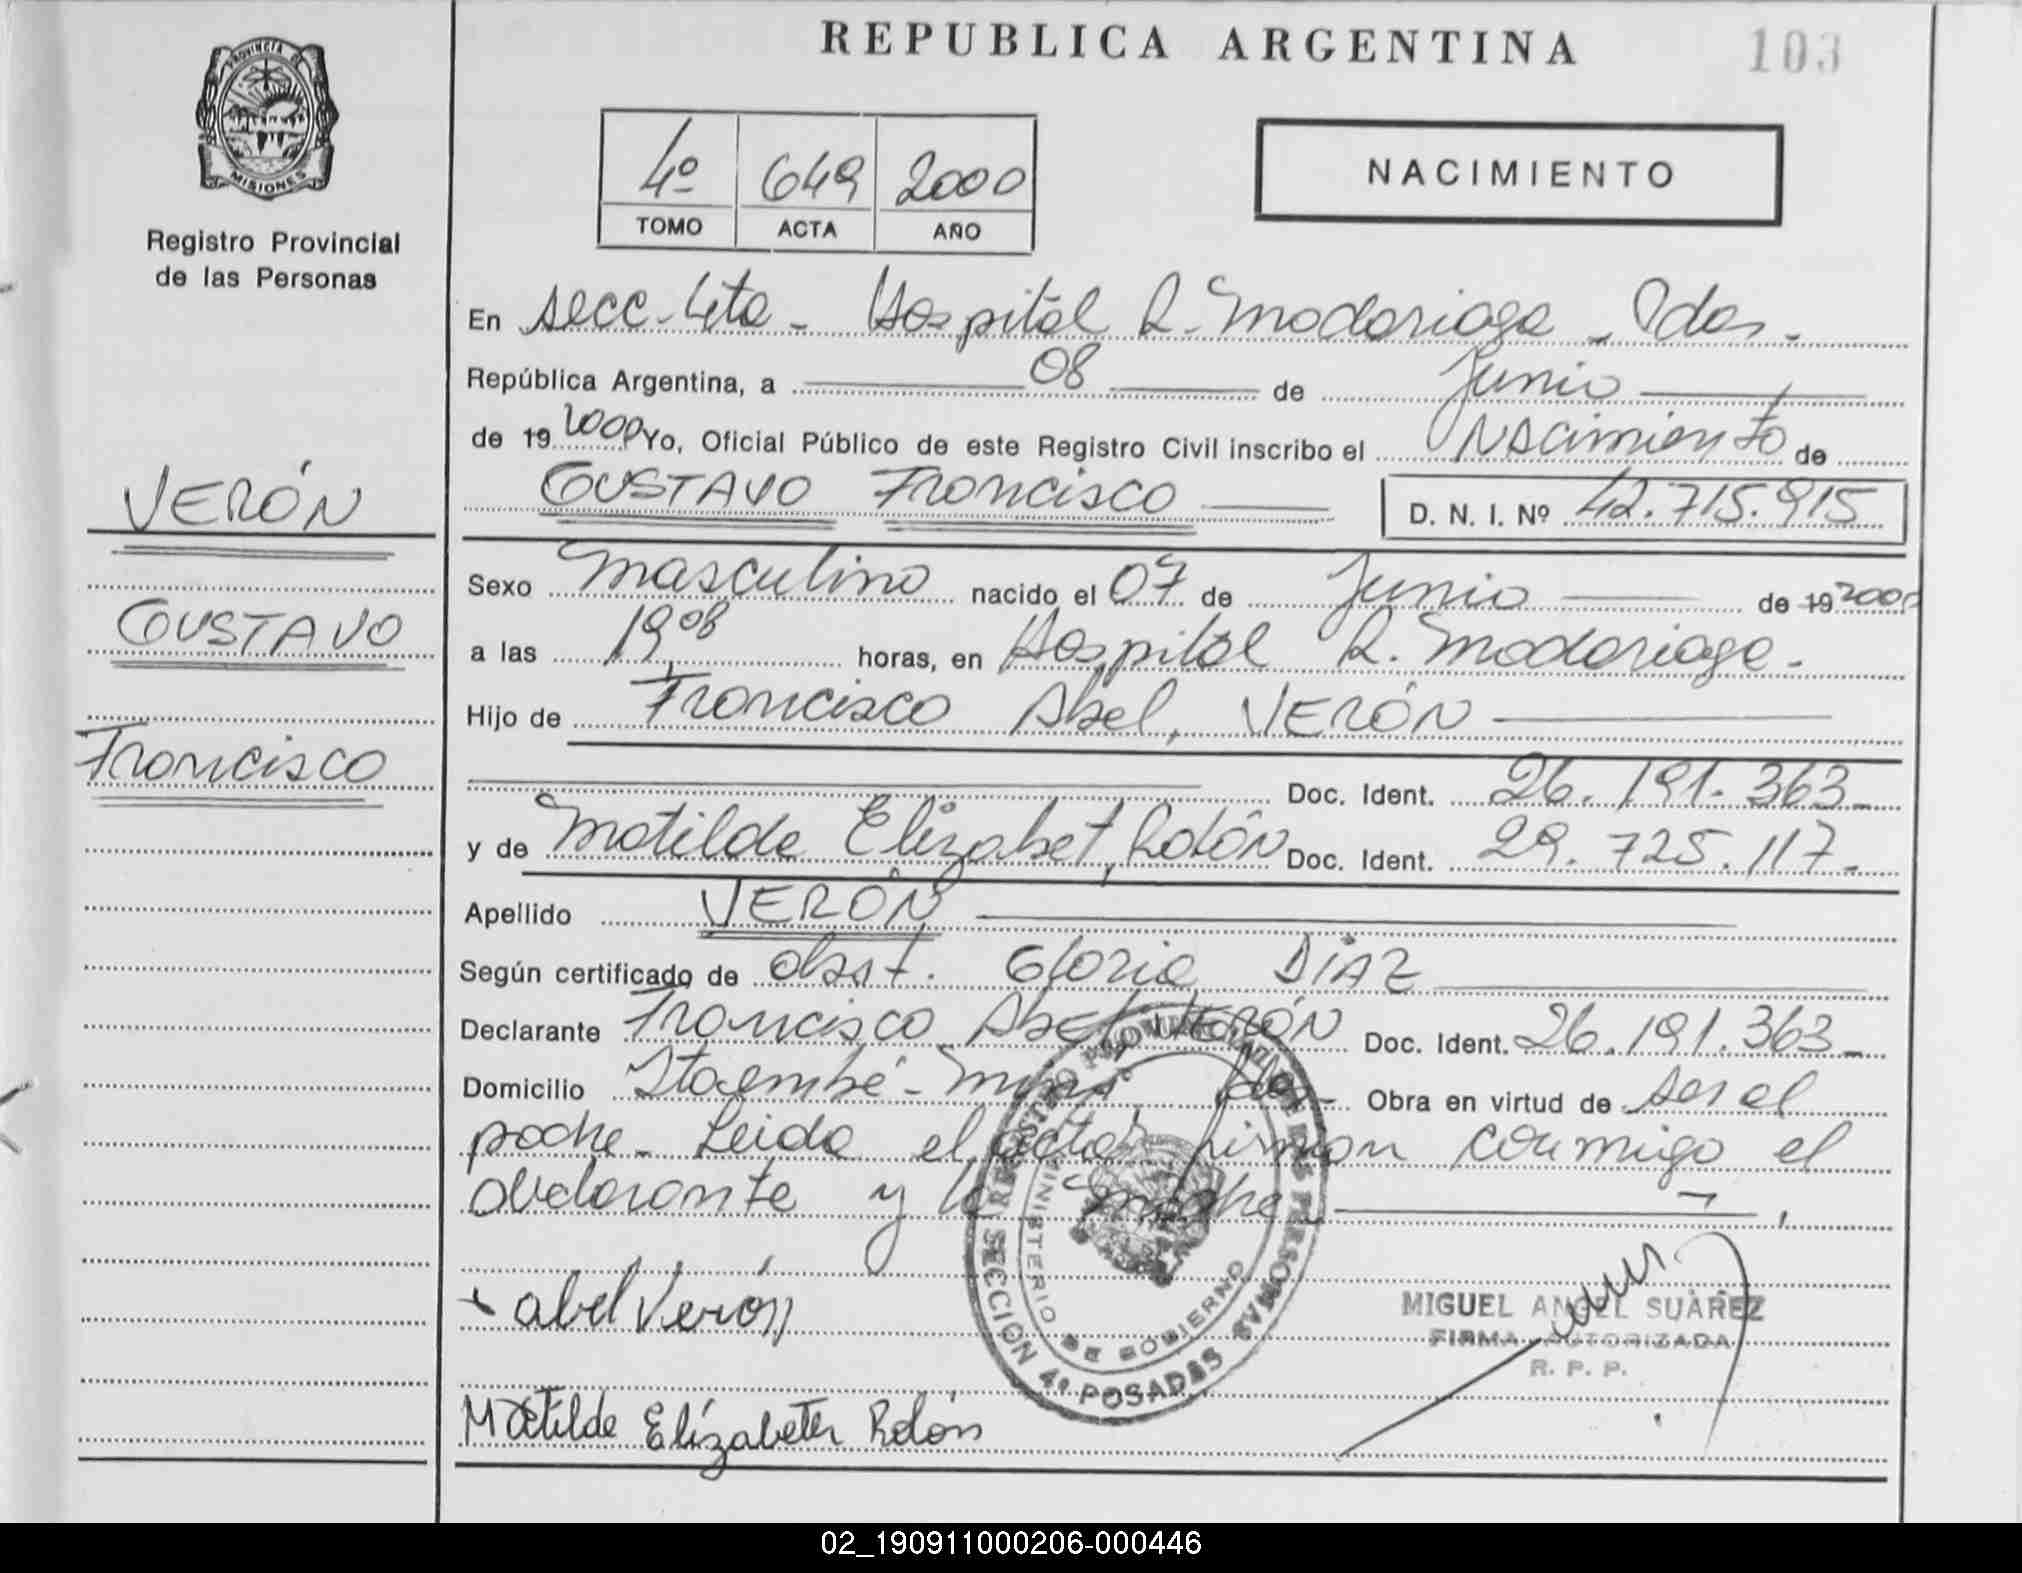 REPUBLICA ARGENTINA
103
PROVINCIA DE
MISIONES
Registro Provincial
de las Personas
4º 649 2000
TOMO ACTA AÑO
NACIMIENTO
En Secc. 4ta - Hospital R. Madariaga - Pdas.
República Argentina, a 08 de Junio
de 19 2000 Yo, Oficial Público de este Registro Civil inscribo el Nacimiento de
GUSTAVO Francisco D. N. I. Nº 42.715.915
VERÓN
GUSTAVO
Francisco
Sexo masculino nacido el 07 de Junio de 19 2000
a las 19,08 horas, en Hospital R. Madariaga.
Hijo de Francisco Abel, VERÓN
Doc. Ident. 26.191.363-
y de Matilde Elizabet, Rolón Doc. Ident. 29.725.117-
Apellido VERÓN
Según certificado de obst. Gloria DÍAZ
Declarante Francisco Abel, VERÓN Doc. Ident. 26.191.363-
Domicilio Itaembé - Miní Pdas - Obra en virtud de ser el
padre - Leida el acta, firman conmigo el
declarante y la madre
abel Verón
MIGUEL ANGEL SUAREZ
FIRMA AUTORIZADA
R. P. P.
REGISTRO PROVINCIAL DE LAS PERSONAS
MINISTERIO DE GOBIERNO
SECCION 4º POSADAS
Matilde Elizabeth Rolón
02_190911000206-000446